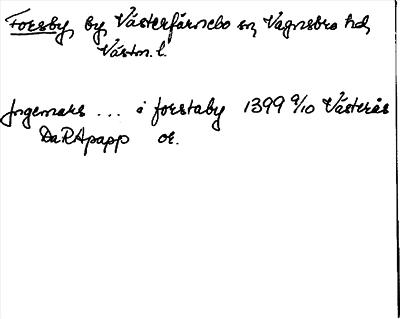 Forsby, by Västerfärnebo sn, Vagnsbro hd,
Västm. l.
Ingemars ... i forstaby 1399 9/10 Västerås
DaRApapp or.